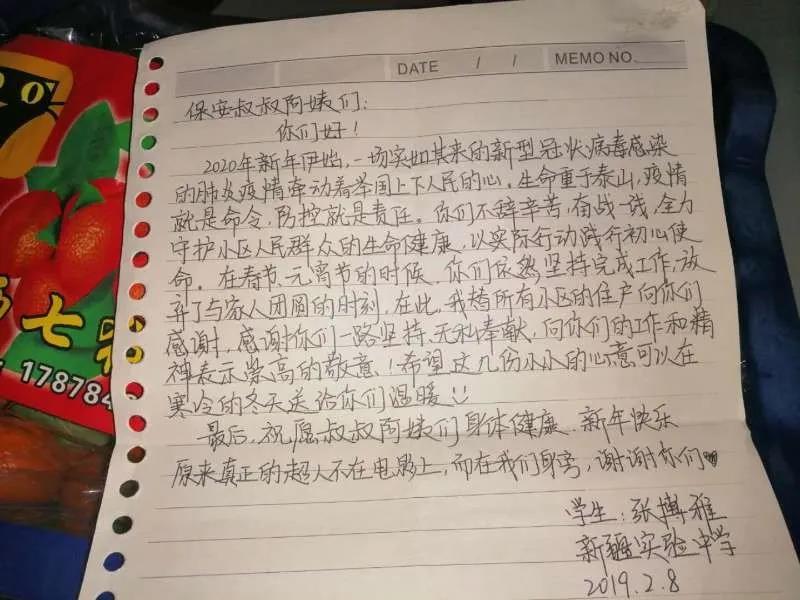 DATE / / MEMO NO.
保安叔叔阿姨们:
你们好!
2020年新年伊始,一场突如其来的新型冠状病毒感染
的肺炎疫情牵动着举国上下人民的心。生命重于泰山,疫情
就是命令,防控就是责任。你们不辞辛苦,奋战一线,全力
守护小区人民群众的生命健康,以实际行动践行初心使
命。在春节、元宵节的时候,你们依然坚持完成工作,放
弃了与家人团圆的时刻,在此,我替所有小区的住户向你们
感谢,感谢你们一路坚持、无私奉献,向你们的工作和精
神表示崇高的敬意!希望这几份小小的心意可以在
寒冷的冬天送给你们温暖
最后,祝愿叔叔阿姨们身体健康、新年快乐
原来真正的超人不在电影上,而在我们身旁,谢谢你们
学生:张搏雅
新疆实验中学
2019.2.8
七彩
178784